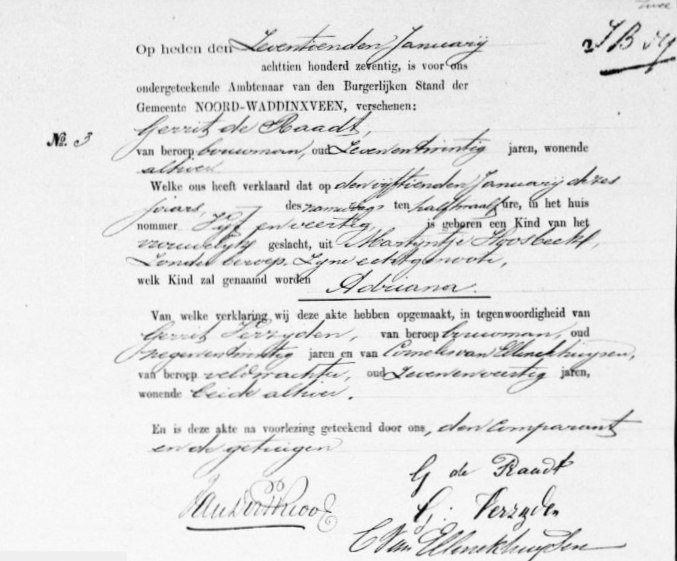 Op heden den Zeventienden January
achttien honderd zeventig, is voor ons
ondergeteekende Ambtenaar van den Burgerlijken Stand der
Gemeente NOORD-WADDINXVEEN, verschenen:
No. 3
Gerrit de Raadt,
van beroep bouwman, oud Zevenentwintig jaren, wonende
alhier
Welke ons heeft verklaard dat op den vijftienden January dezes
jaars, des namiddags ten half twaalf ure, in het huis
nommer Vijf en veertig, is geboren een Kind van het
vrouwelijk geslacht, uit Martijntje
Zonder beroep, Zijne echtgenoote,
welk Kind zal genaamd worden
Adriana.
Van welke verklaring wij deze akte hebben opgemaakt, in tegenwoordigheid van
Gerrit Verzyden, van beroep bouwman, oud
jaren en van Cornelis van Ellinckhuijsen,
van beroep veldwachter, oud Zevenenveertig jaren,
wonende beide alhier.
En is deze akte na voorlezing geteekend door ons, den Comparant
en de getuigen
G de Raadt
G: Verzyden
C Van Ellinckhuysen